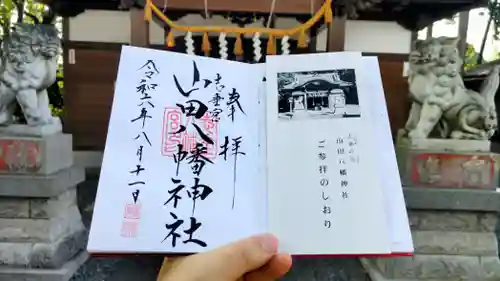 山田八幡神社
ご参拝のしおり
奉拝
山田八幡神社
令和六年八月十一日